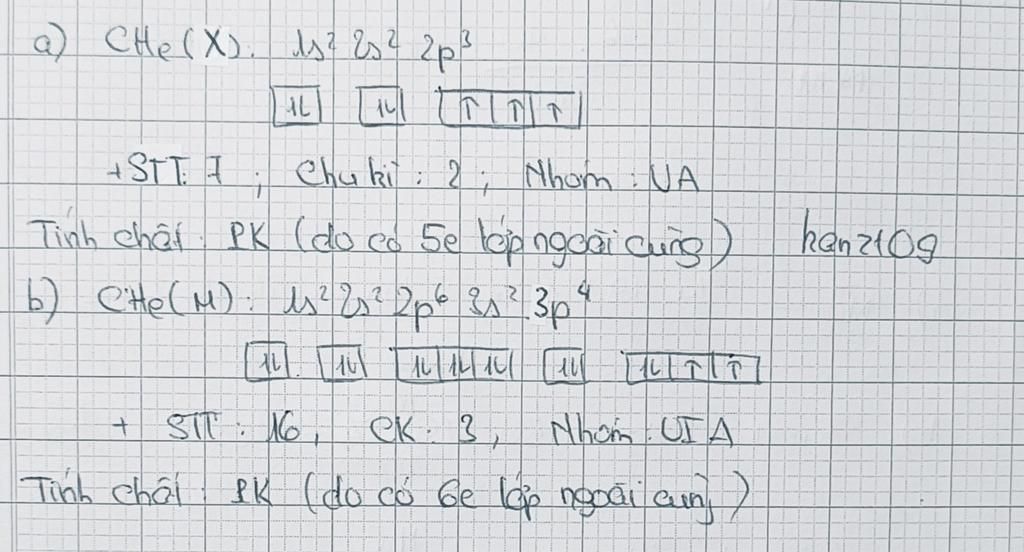 a) CHe(X): 1s² 2s² 2p³
↑↓ ↑↓ ↑ ↑ ↑
+ STT: 7 ; Chu kì : 2 ; Nhóm : VA
Tính chất : PK (do có 5e lớp ngoài cùng) han210g
b) CHe(M) : 1s² 2s² 2p⁶ 3s² 3p⁴
↑↓ ↑↓ ↑↓ ↑↓ ↑↓ ↑↓ ↑↓ ↑ ↑
+ STT : 16, CK : 3, Nhóm : VIA
Tính chất : PK (do có 6e lớp ngoài cùng)